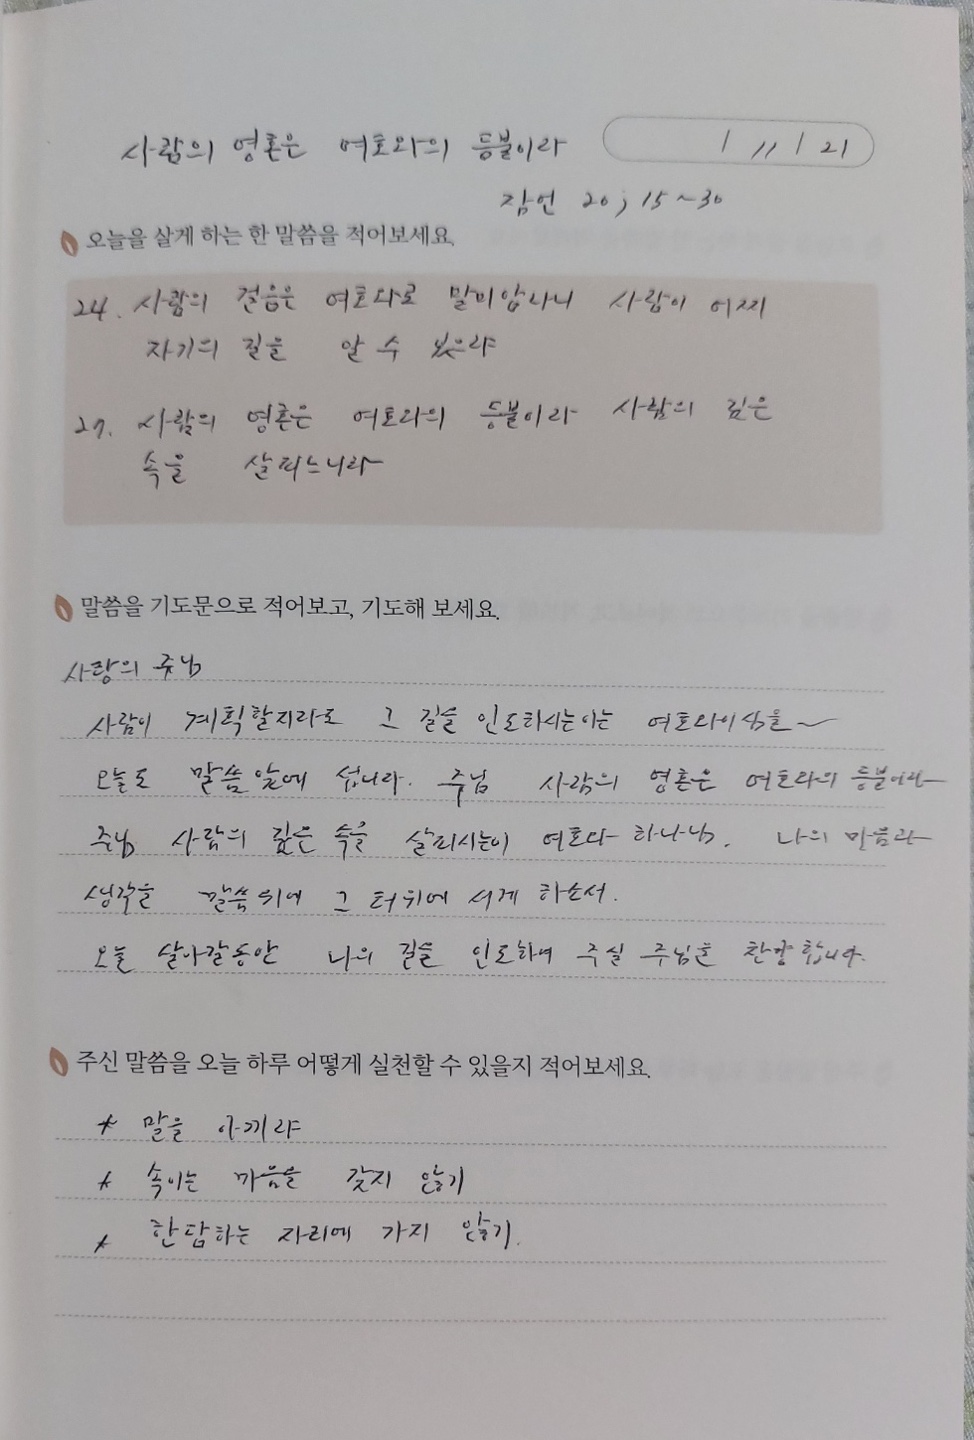 사람의 영혼은 여호와의 등불이라
/ 11 / 21
잠언 20; 15~30
오늘을 살게 하는 한 말씀을 적어보세요.
24. 사람의 걸음은 여호와로 말미암나니 사람이 어찌
자기의 길을 알 수 있으랴
27. 사람의 영혼은 여호와의 등불이라 사람의 깊은
속을 살피느니라
말씀을 기도문으로 적어보고, 기도해 보세요.
사랑의 주님
사람이 계획할지라도 그 길을 인도하시는이는 여호와이심을~
오늘도 말씀 앞에 섭니다. 주님 사람의 영혼은 여호와의 등불이라
주님 사람의 깊은 속을 살피시는이 여호와 하나님. 나의 마음과
생각을 말씀위에 그 터위에 서게 하소서.
오늘 살아갈동안 나의 길을 인도하여 주실 주님을 찬양합니다.
주신 말씀을 오늘 하루 어떻게 실천할 수 있을지 적어보세요.
* 말을 아끼라
* 속이는 마음을 갖지 않기
* 한담하는 자리에 가지 않기.